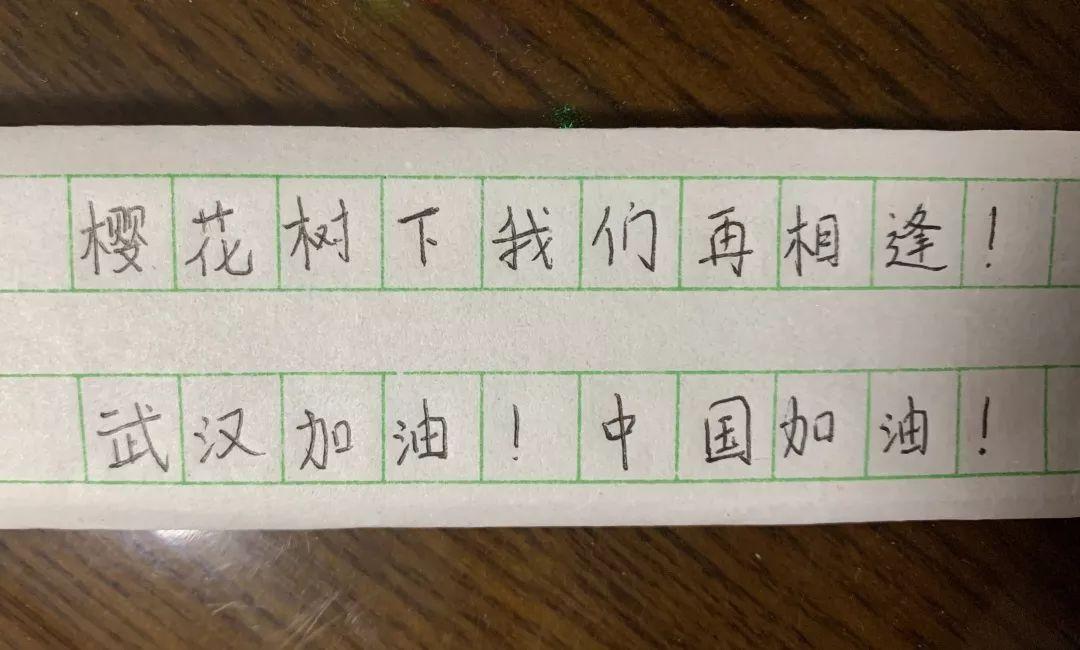 樱花树下我们再相逢！
武汉加油！中国加油！